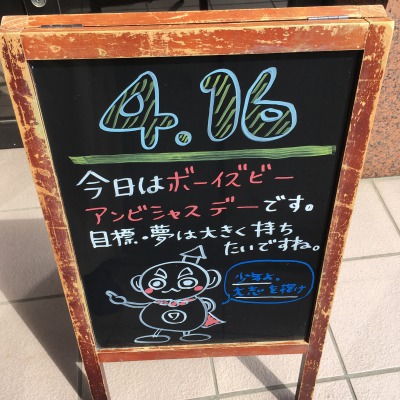 4.16
今日はボーイズビー
アンビシャスデーです。
目標・夢は大きく持ち
たいですね。
少年よ、
大志を抱け